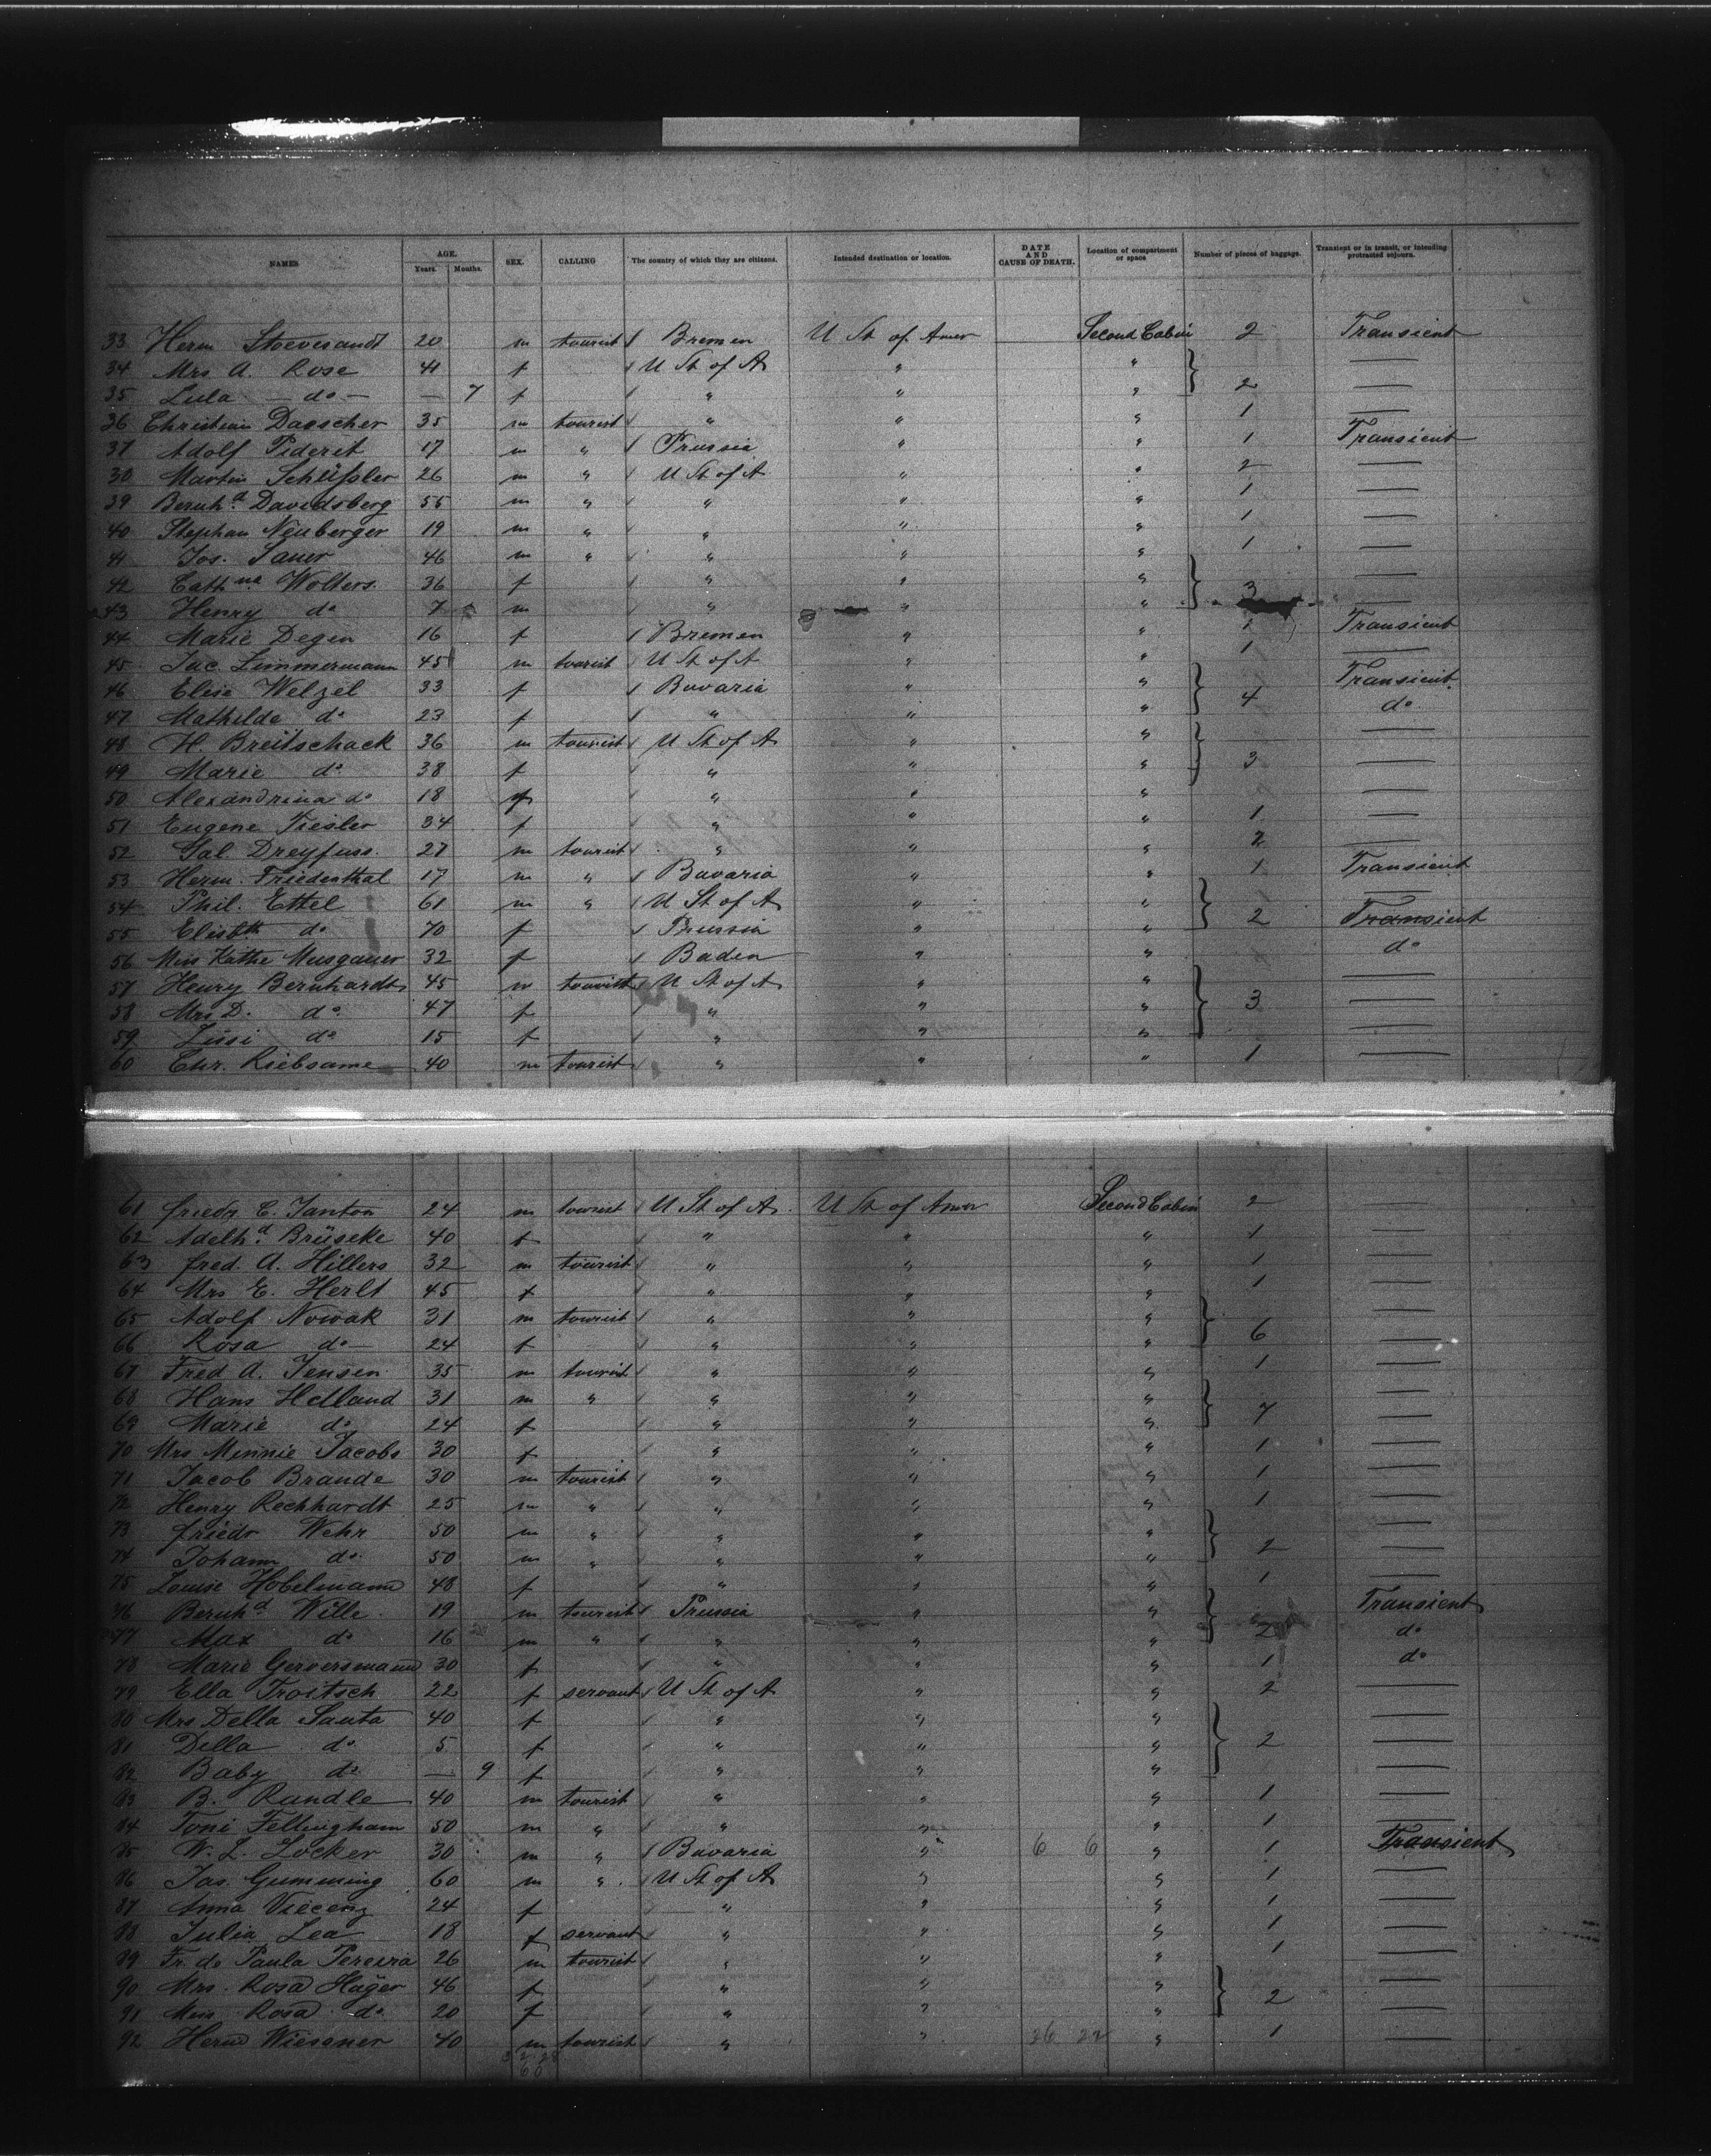 NAMES AGE. Years. Months. SEX. CALLING The country of which they are citizens. Intended destination or location. DATE AND CAUSE OF DEATH. Location of compartment or space Number of pieces of baggage. Transient or in transit, or intending protracted sojourn.
33 Herm Stoeverandt 20 m tourist Bremen U St of Amer Second Cabin 2 Transient
34 Mrs A. Rose 41 f U St of A " " —
35 Lula — do — — 7 f " " " 2 —
36 Christian Daescher 35 m tourist " " " 1 —
37 Adolf Piderit 17 m " Prussia " " 1 Transient
38 Martin Schüssler 26 m " U St of A " " 2 —
39 Bernhd. Davidsberg 55 m " " " " 1 —
40 Stephan Neuberger 19 m " " " " 1 —
41 Jos. Sauer 46 m " " " " 1 —
42 Cathna Wolters. 36 f " " " —
43 Henry do 7 m " " " 3 —
44 Marie Degen 16 f Bremen " " 1 Transient
45 Jac. Zimmermann 45 m tourist U St of A " " 1 —
46 Elise Welzel 33 f Bavaria " " Transient
47 Mathilde do 23 f " " " 4 do
48 H. Breitschack 36 m tourist U St of A " " —
49 Marie do 38 f " " " 3 —
50 Alexandrina do 18 f " " " —
51 Eugene Tiesler 34 f " " " 1 —
52 Sal. Dreyfuss. 27 m tourist " " " 2 —
53 Herm. Friedenthal 17 m " Bavaria " " 1 Transient
54 Phil. Ettel 61 m " U St of A " " —
55 Elisbth do 70 f Prussia " " 2 Transient
56 Miss Kathe Musgauer 32 f Baden " " do
57 Henry Bernhardt 45 m tourist U St of A " " —
58 Mrs D. do 47 f " " " 3 —
59 Lüsi do 15 f " " " —
60 Chr. Riebsame 40 m tourist " " " 1 —
61 Friedr C. Janton 24 m tourist U St of A. U St of Amer Second Cabin 2 —
62 Adelhd. Brüseke 40 f " " " 1 —
63 Fred. A. Hillers 32 m tourist " " " 1 —
64 Mrs E. Herlt 45 f " " " 1 —
65 Adolf Nowak 31 m tourist " " " —
66 Rosa do — 24 f " " " 6 —
67 Fred A. Jensen 35 m tourist " " " 1 —
68 Hans Helland 31 m " " " " —
69 Marie do 24 f " " " 7 —
70 Mrs Minnie Jacobs 30 f " " " 1 —
71 Jacob Braude 30 m tourist " " " 1 —
72 Henry Rechhardt 25 m " " " " 1 —
73 Friedr Wehr 50 m " " " " —
74 Johann do 50 m " " " " 2 —
75 Louise Hobelmann 48 f " " " 1 —
76 Bernhd. Wille 19 m tourist Prussia " " Transient
77 Max do 16 m " " " " 2 do
78 Marie Gerversmann 30 f " " " 1 do
79 Ella Troitsch 22 f servant U St of A " " 2 —
80 Mrs Della Santa 40 f " " " —
81 Della do 5 f " " " 2 —
82 Baby do — 9 f " " "
83 B. Randle 40 m tourist " " " 1 —
84 Toni Fellingham 50 m " " " " 1 —
85 W. L. Locker 30 m " Bavaria " 6 6 " 1 Transient
86 Jas. Gumming 60 m " U St of A " " 1 —
87 Anna Viecenz 24 f " " " 1 —
88 Julia Lea 18 f servant " " " 1 —
89 Fr. de Paula Pereira 26 m tourist " " " 1 —
90 Mrs. Rosa Häger 46 f " " " —
91 Miss Rosa do 20 f " " " 2 —
92 Herm Wiesener 40 m tourist " " 26 22 " 1 —
60